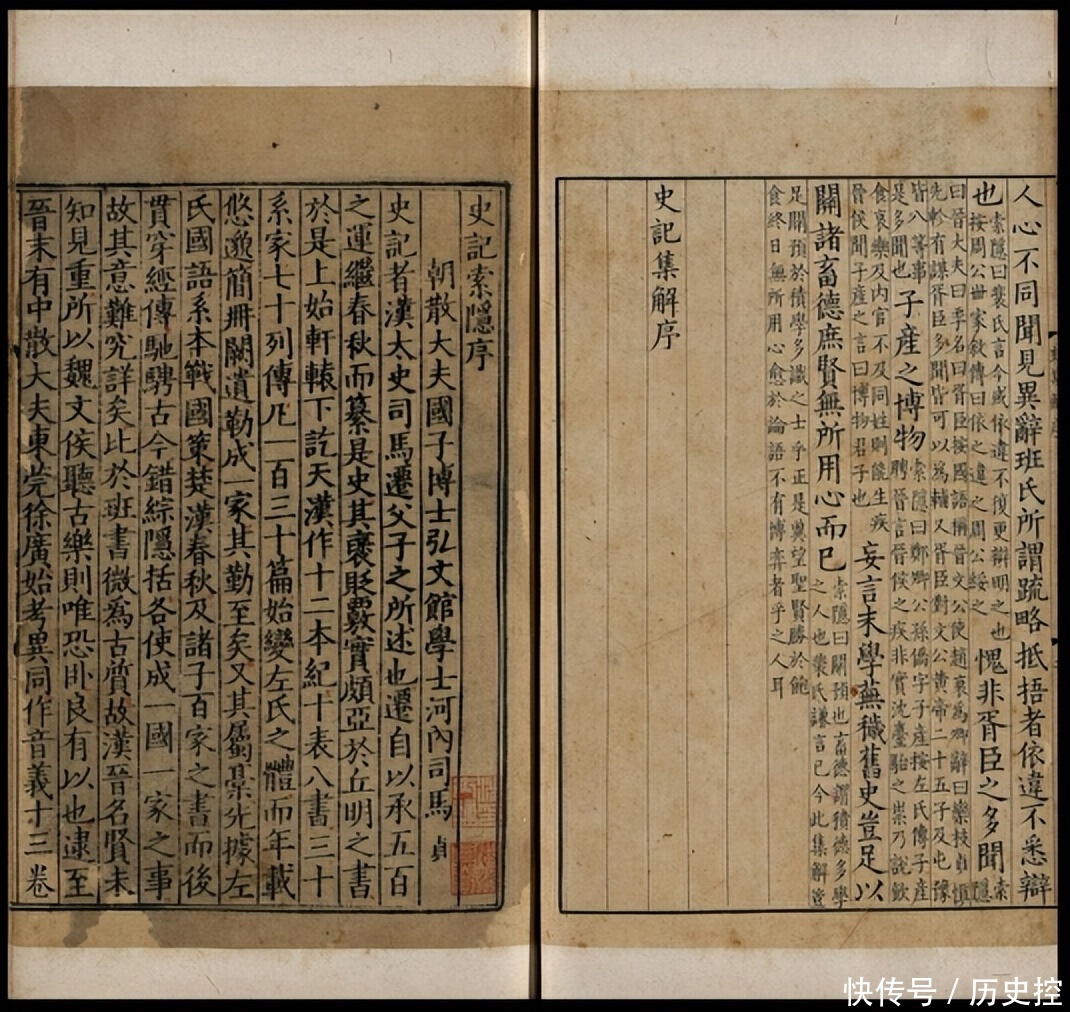 人心不同聞見異辭班氏所謂疏略抵捂者依違不悉辯
也索隱曰裴氏言今或依違不復更辯明之也按周公世家敘傳曰依之違之周公綏之愧非胥臣之多聞索隱
曰晉大夫曰季名曰胥臣按國語稱晉文公使趙衰為卿辭曰欒枝貞慎先軫有謀胥臣多聞皆可以為輔又胥臣對文公黃帝二十五子及屯豫
皆八等事是多聞也子產之博物索隱曰鄭卿公孫僑字子產按左氏傳子產聘晉言晉侯之疾非實沈臺駘之祟乃說飲
食哀樂及內官不及同姓則能生疾晉侯聞子產之言曰博物君子也妄言末學蕪穢舊史豈足以
關諸畜德庶賢無所用心而已索隱曰關預也畜德謂積德多學之人也裴氏謙言已今此集解豈
足關預於積學多識之士乎正是冀望聖賢勝於飽食終日無所用心愈於論語不有博弈者乎之人耳
史記集解序
史記索隱序
朝散大夫國子博士弘文館學士河內司馬貞
史記者漢太史司馬遷父子之所述也遷自以承五百
之運繼春秋而纂是史其褒貶覈實頗亞於丘明之書
於是上始軒轅下訖天漢作十二本紀十表八書三十
系家七十列傳凡一百三十篇始變左氏之體而年載
悠邈簡冊闕遺勒成一家其勤至矣又其屬稾先據左
氏國語系本戰國策楚漢春秋及諸子百家之書而後
貫穿經傳馳騁古今錯綜隱括各使成一國一家之事
故其意難究詳矣比於班書微為古質故漢晉名賢未
知見重所以魏文侯聽古樂則唯恐臥良有以也逮至
晉末有中散大夫東莞徐廣始考異同作音義十三卷
快传号/历史控